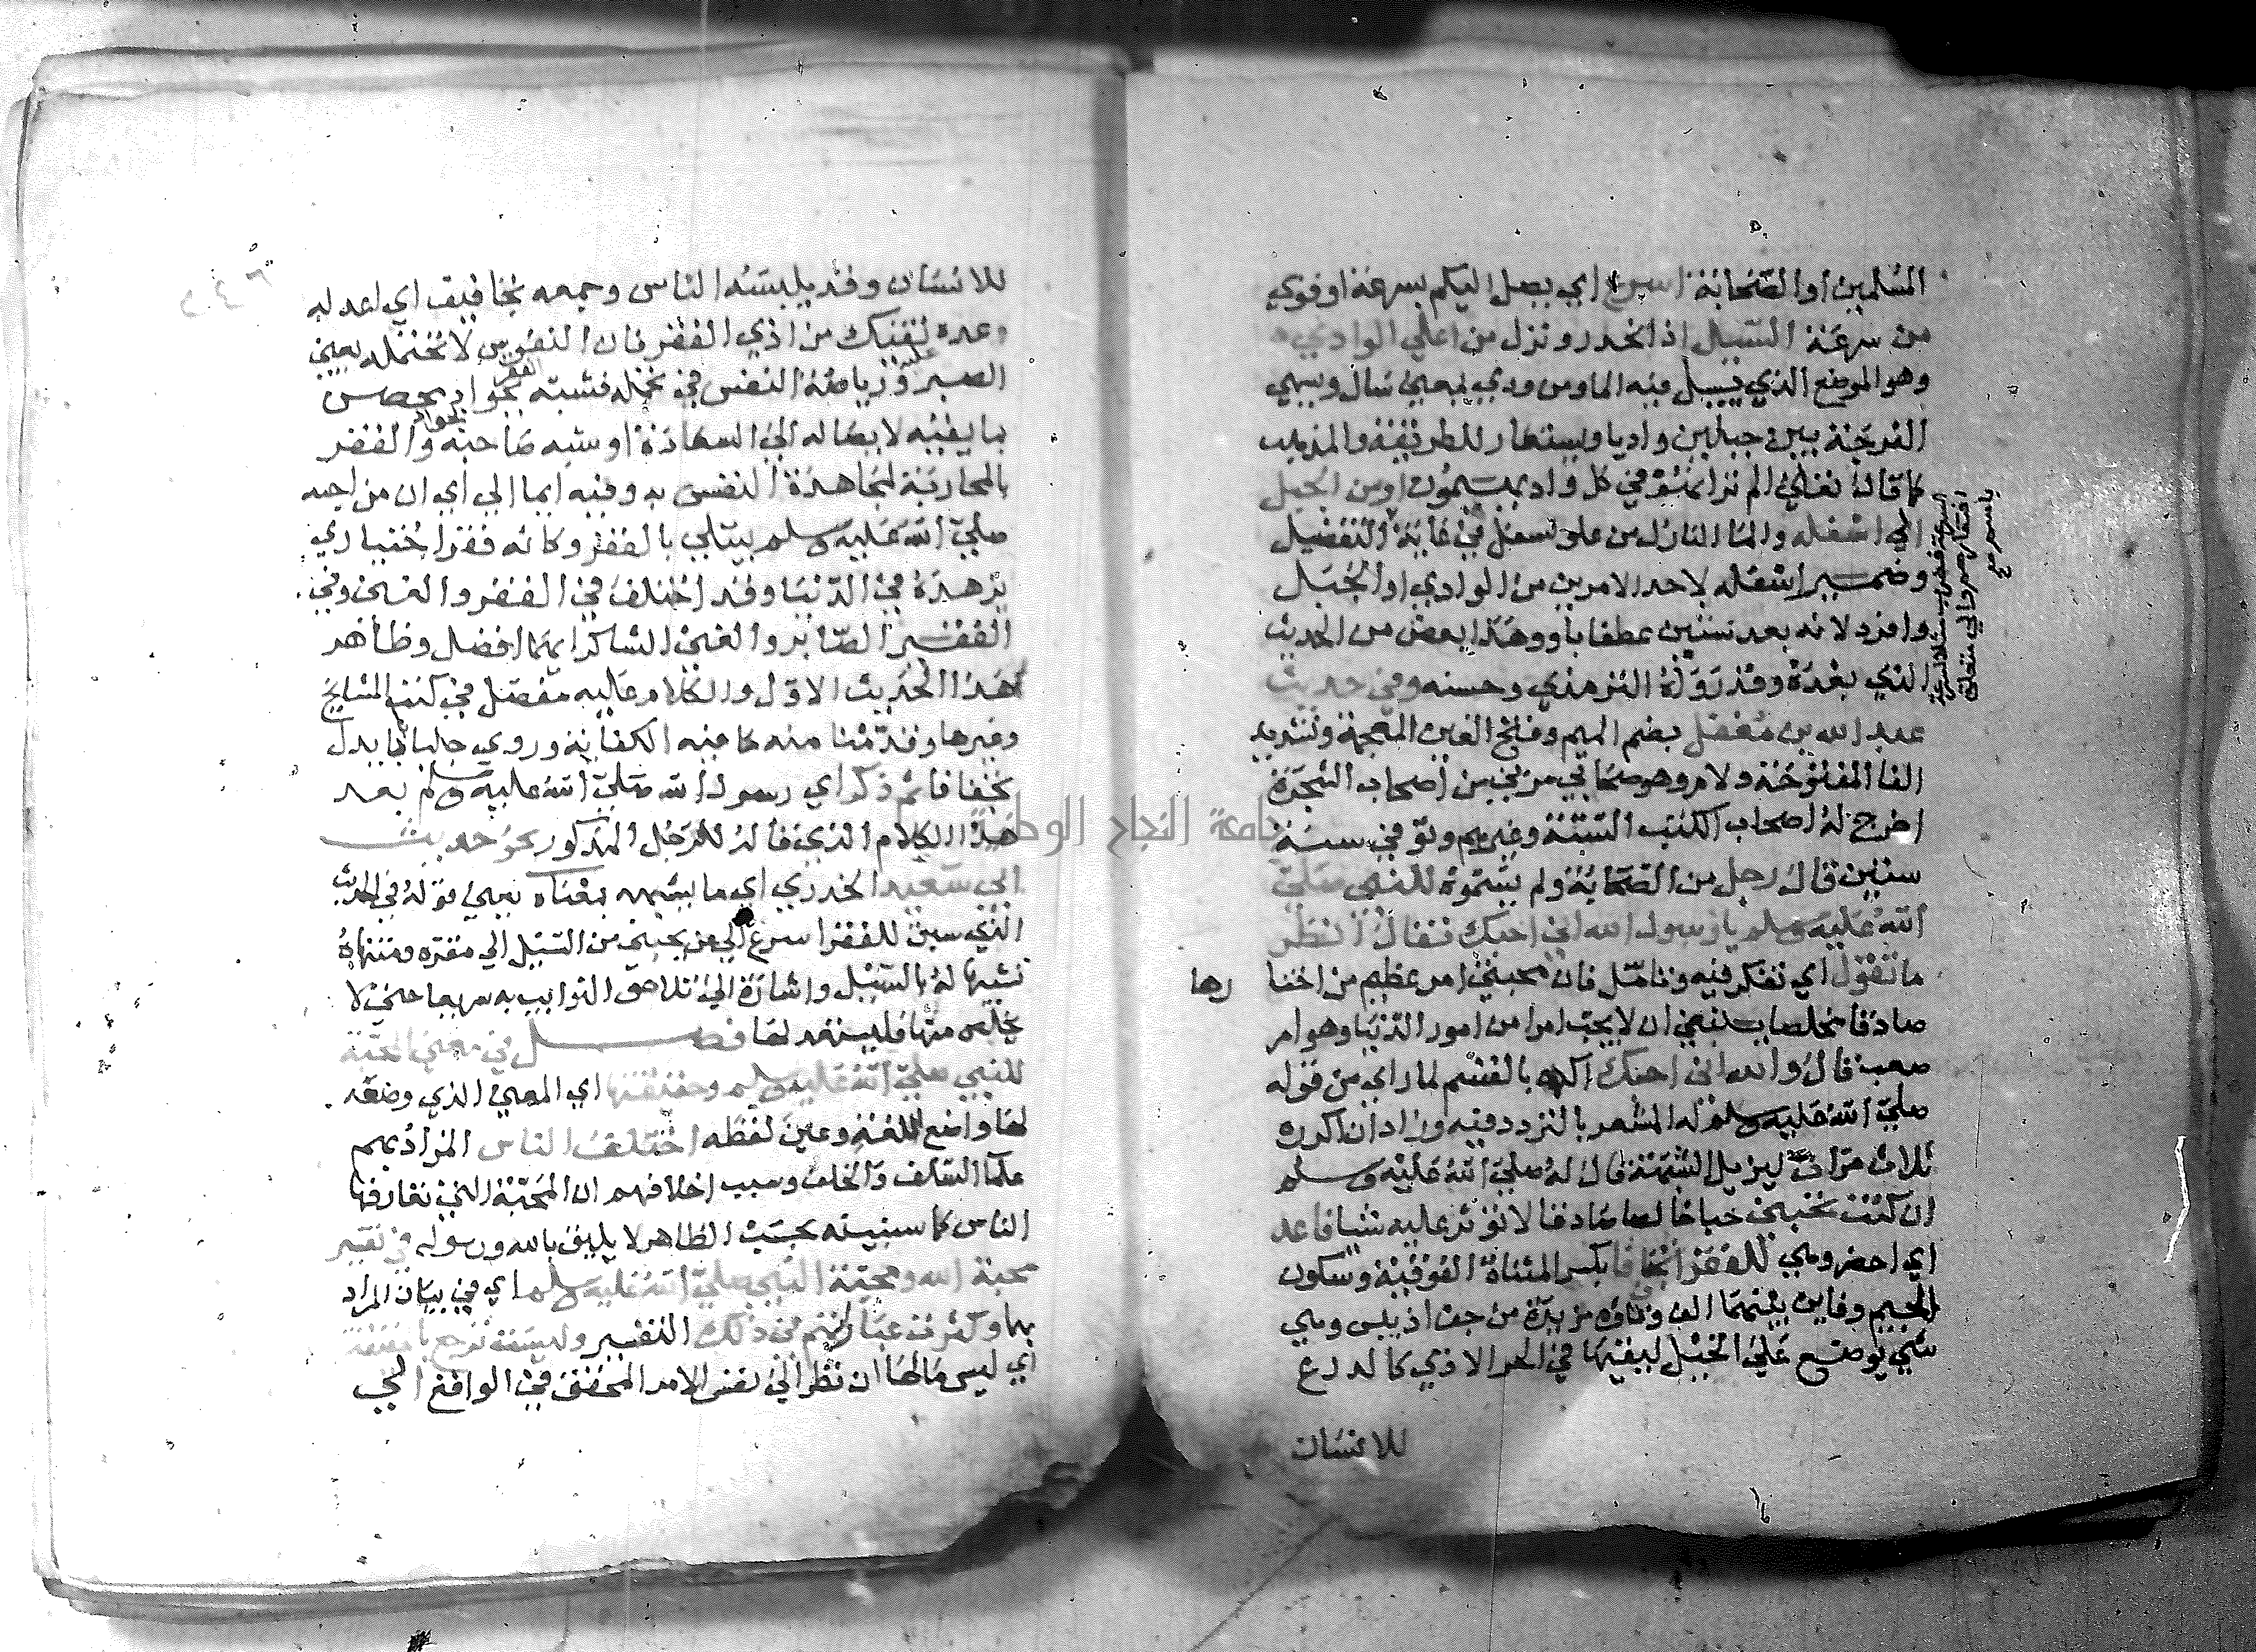 المسلمين او الصحابة اسرع اي يصل اليكم بسرعة او قوي
من سرعة السيل اذا انحدر ونزل من اعلي الوادي
وهو الموضع الذي يسيل فيه الماومن ودي بمعني سال وسمي
الفرجة بين جبلين واديا ويستعار للطريقة والمذهب
كما قال تعالي الم تر انهم في كل واد يهيمون اومن الجبل
الي اسفله والما النازل من علو لسفل في غاية التفضيل
وضمير اسفله لاحد الامرين من الوادي او الجبل
وافرد لانه بعد شيئين عطفا باو وهذا بعض من الحديث
الذي بعده وقد رواه الترمذي وحسنه وفي حديث
عبد الله بن مغفل بضم الميم وفتح الغين المعجمة وتشديد
الفا المفتوحة ولام وهو صحابي مزني من اصحاب الشجرة
اخرج له اصحاب الكتب الستة وغيرهم وتوفي سنة
ستين قال رجل من الصحابة ولم يسموه للنبي صلي
الله عليه وسلم يارسول الله اني احبك فقال انظر
ما تقول اي تفكر فيه وتامل فان محبتي امر عظيم من اختا رها
صادقا مخلصا ينبغي ان لا يحب امرا من امور الدنيا وهو امر
صعب قال والله اني احبك اكده بالقسم لما راي من قوله
صلي الله عليه وسلم له المشعر بالتردد فيه وزاد ان اكرره
ثلاث مرات ليزيل الشبهة قال له صلي الله عليه وسلم
ان كنت تحبني حبا خالصا صادقا لا تؤثر عليه شيا فاعد
اي احضر وهي للفقر تجفافا بكسر المثناة الفوقية وسكون
الجيم وفاين بينهما الف وتاؤه مزيدة من جف اذ يبس وهي
شي يوضع علي الخيل ليقيها في الحر الاذي كالدرع
للانسان
للانسان وقد يلبسه الناس وجمعه تجافيف اي اعد له
وعده لتقيك من اذي الفقر فان النفوس لا تحتمله يعني
الصبر ورياضة النفس في تحمله فشبه الفقر بجواد يحصن
بما يقيه لايصاله الي السعادة او شبه صاحبه بجواد والفقر
بالمحاربة لمجاهدة النفس به وفيه ايما الي اي ان من احبه
صلي الله عليه وسلم يبتلي بالفقر وكانه فقر اختياري
بزهده في الدنيا وقد اختلف في الفقر والغني وفي
الفقير الصابر والغني الشاكر ايهما افضل وظاهر
هذا الحديث الاول والكلام عليه مفصل في كتب المشايخ
وغيرها وقدمنا منه ما فيه الكفاية وروي جلبابا بدل
تجفافا ثم ذكر اي رسول الله صلي الله عليه وسلم بعد
هذا الكلام الذي قاله للرجل المذكور نحو حديث
ابي سعيد الخدري اي ما يشبهه بمعناه يعني قوله في الحديث
الذي سبق للفقر اسرع الي من يحبني من السيل الي مقره ومنتهاه
تشبيها له بالسيل واشارة الي تلاحق النوايب به سريعا حتي لا
يخلص منها فليستعد لها فصل في معني المحبة
للنبي صلي الله عليه وسلم وحقيقتها اي المعني الذي وضعه
لها واضع اللغة وعين لفظه اختلف الناس المراد بهم
علما السلف والخلف وسبب اختلافهم ان المحبة التي تعارفها
الناس كما سنبينه بحسب الظاهر لا يليق بالله ورسوله في تفسير
محبة الله ومحبة النبي صلي الله عليه وسلم اي في بيان المراد
بها وكثرت عباراتهم في ذلك التفسير وليست ترجع بالحقيقة
اي ليس مآلها ان نظر الي نفس الامر المحقق في الواقع الي